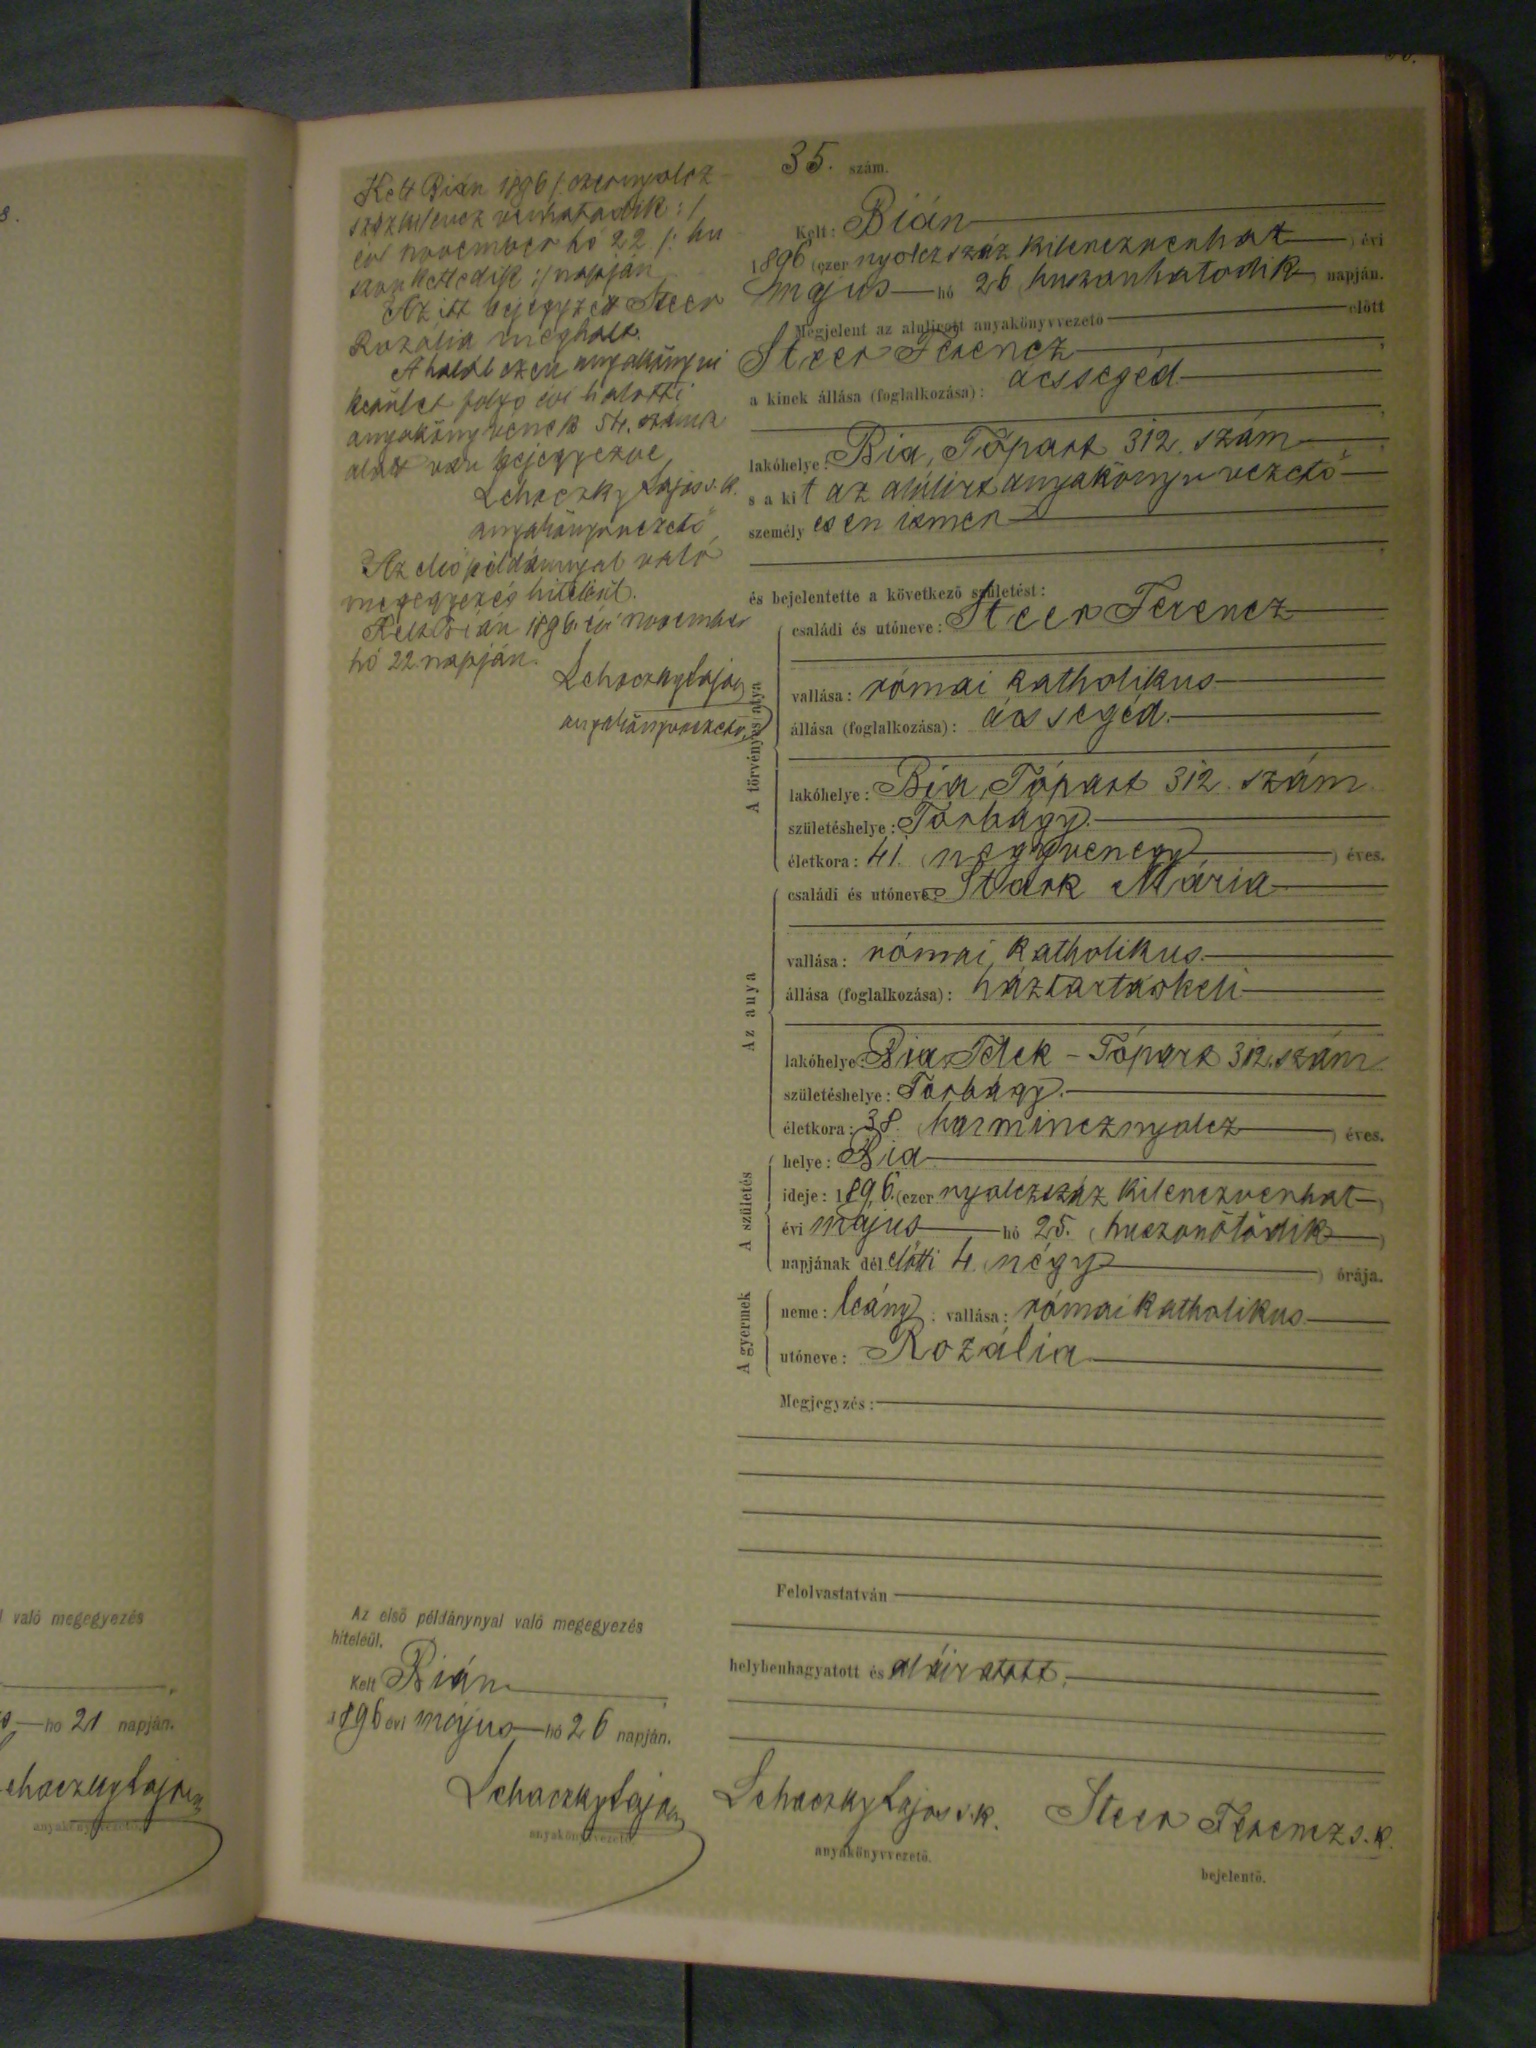 35. szám.
Kelt: Bián
1896 (ezer nyolczszáz kilenczvenhat) évi
május hó 26 (huszonhatodik) napján.
Megjelent az alulirott anyakönyvvezető előtt
Steer Ferencz,
a kinek állása (foglalkozása): ácssegéd
lakóhelye: Bia, Tópart 312. szám
s a kit az alulirt anyakönyvvezető
személyesen ismer
és bejelentette a következő születést:
A törvényes atya
családi és utóneve: Steer Ferencz
vallása: római katholikus
állása (foglalkozása): ácssegéd.
lakóhelye: Bia, Tópart 312. szám
születéshelye: Torbágy.
életkora: 41. (negyvenegy) éves.
Az anya
családi és utóneve: Stark Mária
vallása: római katholikus.
állása (foglalkozása): háztartásbeli
lakóhelye: Bia, Telek - Tópart 312. szám
születéshelye: Torbágy.
életkora: 38. (harmincznyolcz) éves.
A születés
helye: Bia
ideje: 1896. (ezer nyolczszáz kilenczvenhat)
évi május hó 25. (huszonötödik)
napjának dél előtti 4. (négy) órája.
A gyermek
neme: leány; vallása: római katholikus
utóneve: Rozália
Megjegyzés:
Felolvastatván
helybenhagyatott és aláiratott.
Lehoczky Lajos s. k.
anyakönyvvezető.
Steer Ferencz s. k.
bejelentő.
Kelt Bián 1896 /: ezernyolcz
százkilenczvenhatodik :/
évi november hó 22 /: hu
szonkettedik :/ napján
Az itt bejegyzett Steer
Rozália meghalt.
A halál ezen anyakönyvi
kerület folyó évi halotti
anyakönyvének 54. száma
alatt van bejegyezve
Lehoczky Lajos s. k.
anyakönyvvezető
Az első példánnyal való
megegyezés hiteléül.
Kelt Bián 1896. évi november
hó 22 napján.
Lehoczky Lajos
anyakönyvvezető
Az első példánynyal való megegyezés
hiteléül.
Kelt Bián
1896 évi május hó 26 napján.
Lehoczky Lajos
anyakönyvvezető
való megegyezés
hó 21 napján.
anyakönyvvezető